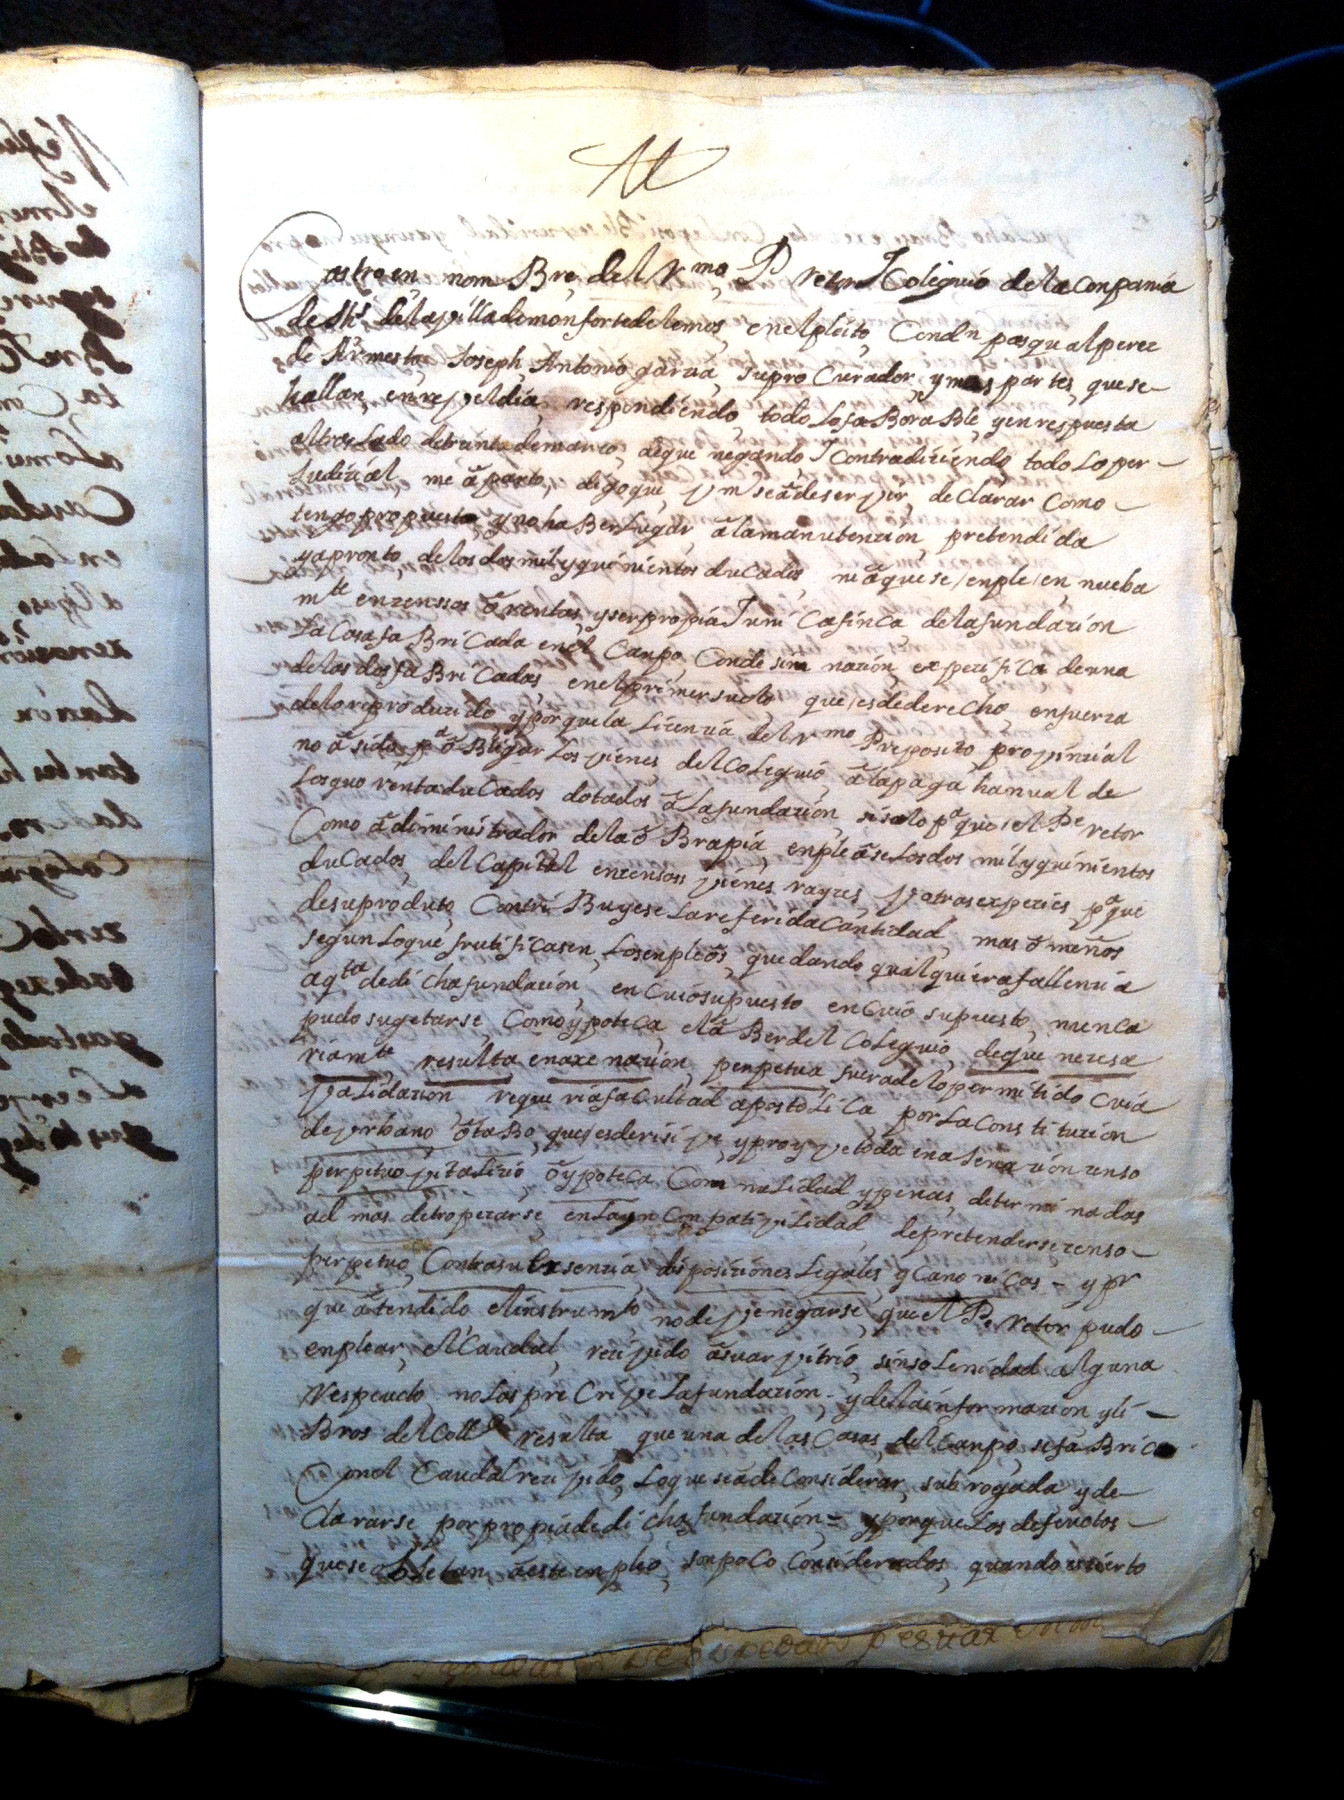 Castro en nomBre del Rmo P retor J Coleguio de la Conpania
de Jhs de la villa de monforte de lemos, en el pleito, Con dn pasqual perez
de Armesta Joseph Antonio garzia, su pro Curador, y mas partes, que se
hallan, en reveldia, respondiendo, todo lo faBoraBle, y en respuesta
al traslado de trinta de marzo, de que negando, J Contradiziendo todo lo per-
Judizial, me aparto, digo que vm se a de servir, de Clarar Como
tengo propuesto, y no haBer Lugar, a la manutenzion, pretendida
y apronto, de los dos mil y quinientos duCados, ni a que se enpleen, nueba
mte en zenssos o rentas, y ser propia J uniCa finca de la fundazion
La Casa faBriCada en el Canpo, Con desimnazion, expezifica de una
de las dos faBriCadas, en el primer suelo, que es de derecho, en fuerza
de lo reproduzido, y porque la Lizenzia del Rmo Preposito provinzial
no a sido, pa oBligar Los vienes del Coleguio, a la paga hanual de
Los quo renta duCados dotados a La fundazion, si solo pa que el Pe retor
Como administrador de la oBra pia, enplease Los dos mil y quinientos
duCados, del Capital en zensos, vienes, rayzes, y otras expezies pa que
de su produto, ContriBuyese La referida Cantidad, mas o menos
segun Lo que frutificasen, Los enpleos, quedando qualquiera fallenzia
a qta de dicha fundazion, en Cuio supuesto en Cuio supuesto, nunca
pudo sugetarse, Como ypoteca, el aBer del Coleguio, de que nezesa
riamte, resulta enaxenazion, perpetua, fuera de lo permitido Cuia
validazion requeria faCultad apostoliCa, por La Constituzion
de vrbano otaBo, que es derisive, y proyve toda enaxenazion zenso
perpetuo vitalizio, o ypoteCa Com nulidad y penas, determinadas
ad mas de tropezarse, en La ynConpativilidad, de pretenderse zenso-
perpetuo, Contra su Exsenzia, disposiziones Legales, y CanoniCas - y pr
que atendido, el instrumto no deve negarse, que el Pe Retor pudo-
enplear, el Caudal, rezivido a su arvitrio, sin solenidad alguna
Respeucto, no Las preCrive La fundazion - y de la informazion y li-
Bros del Collo resulta que una de las Casas, del Canpo, se faBriCo
Con el Caudal rezivido, Lo que se a de Considerar, subrogada y de-
Clararse por propia de dicha fundazion = y porque Los defeuctos-
que se oBJetan, a este enpleo, son poco Considerados, quando es zierto